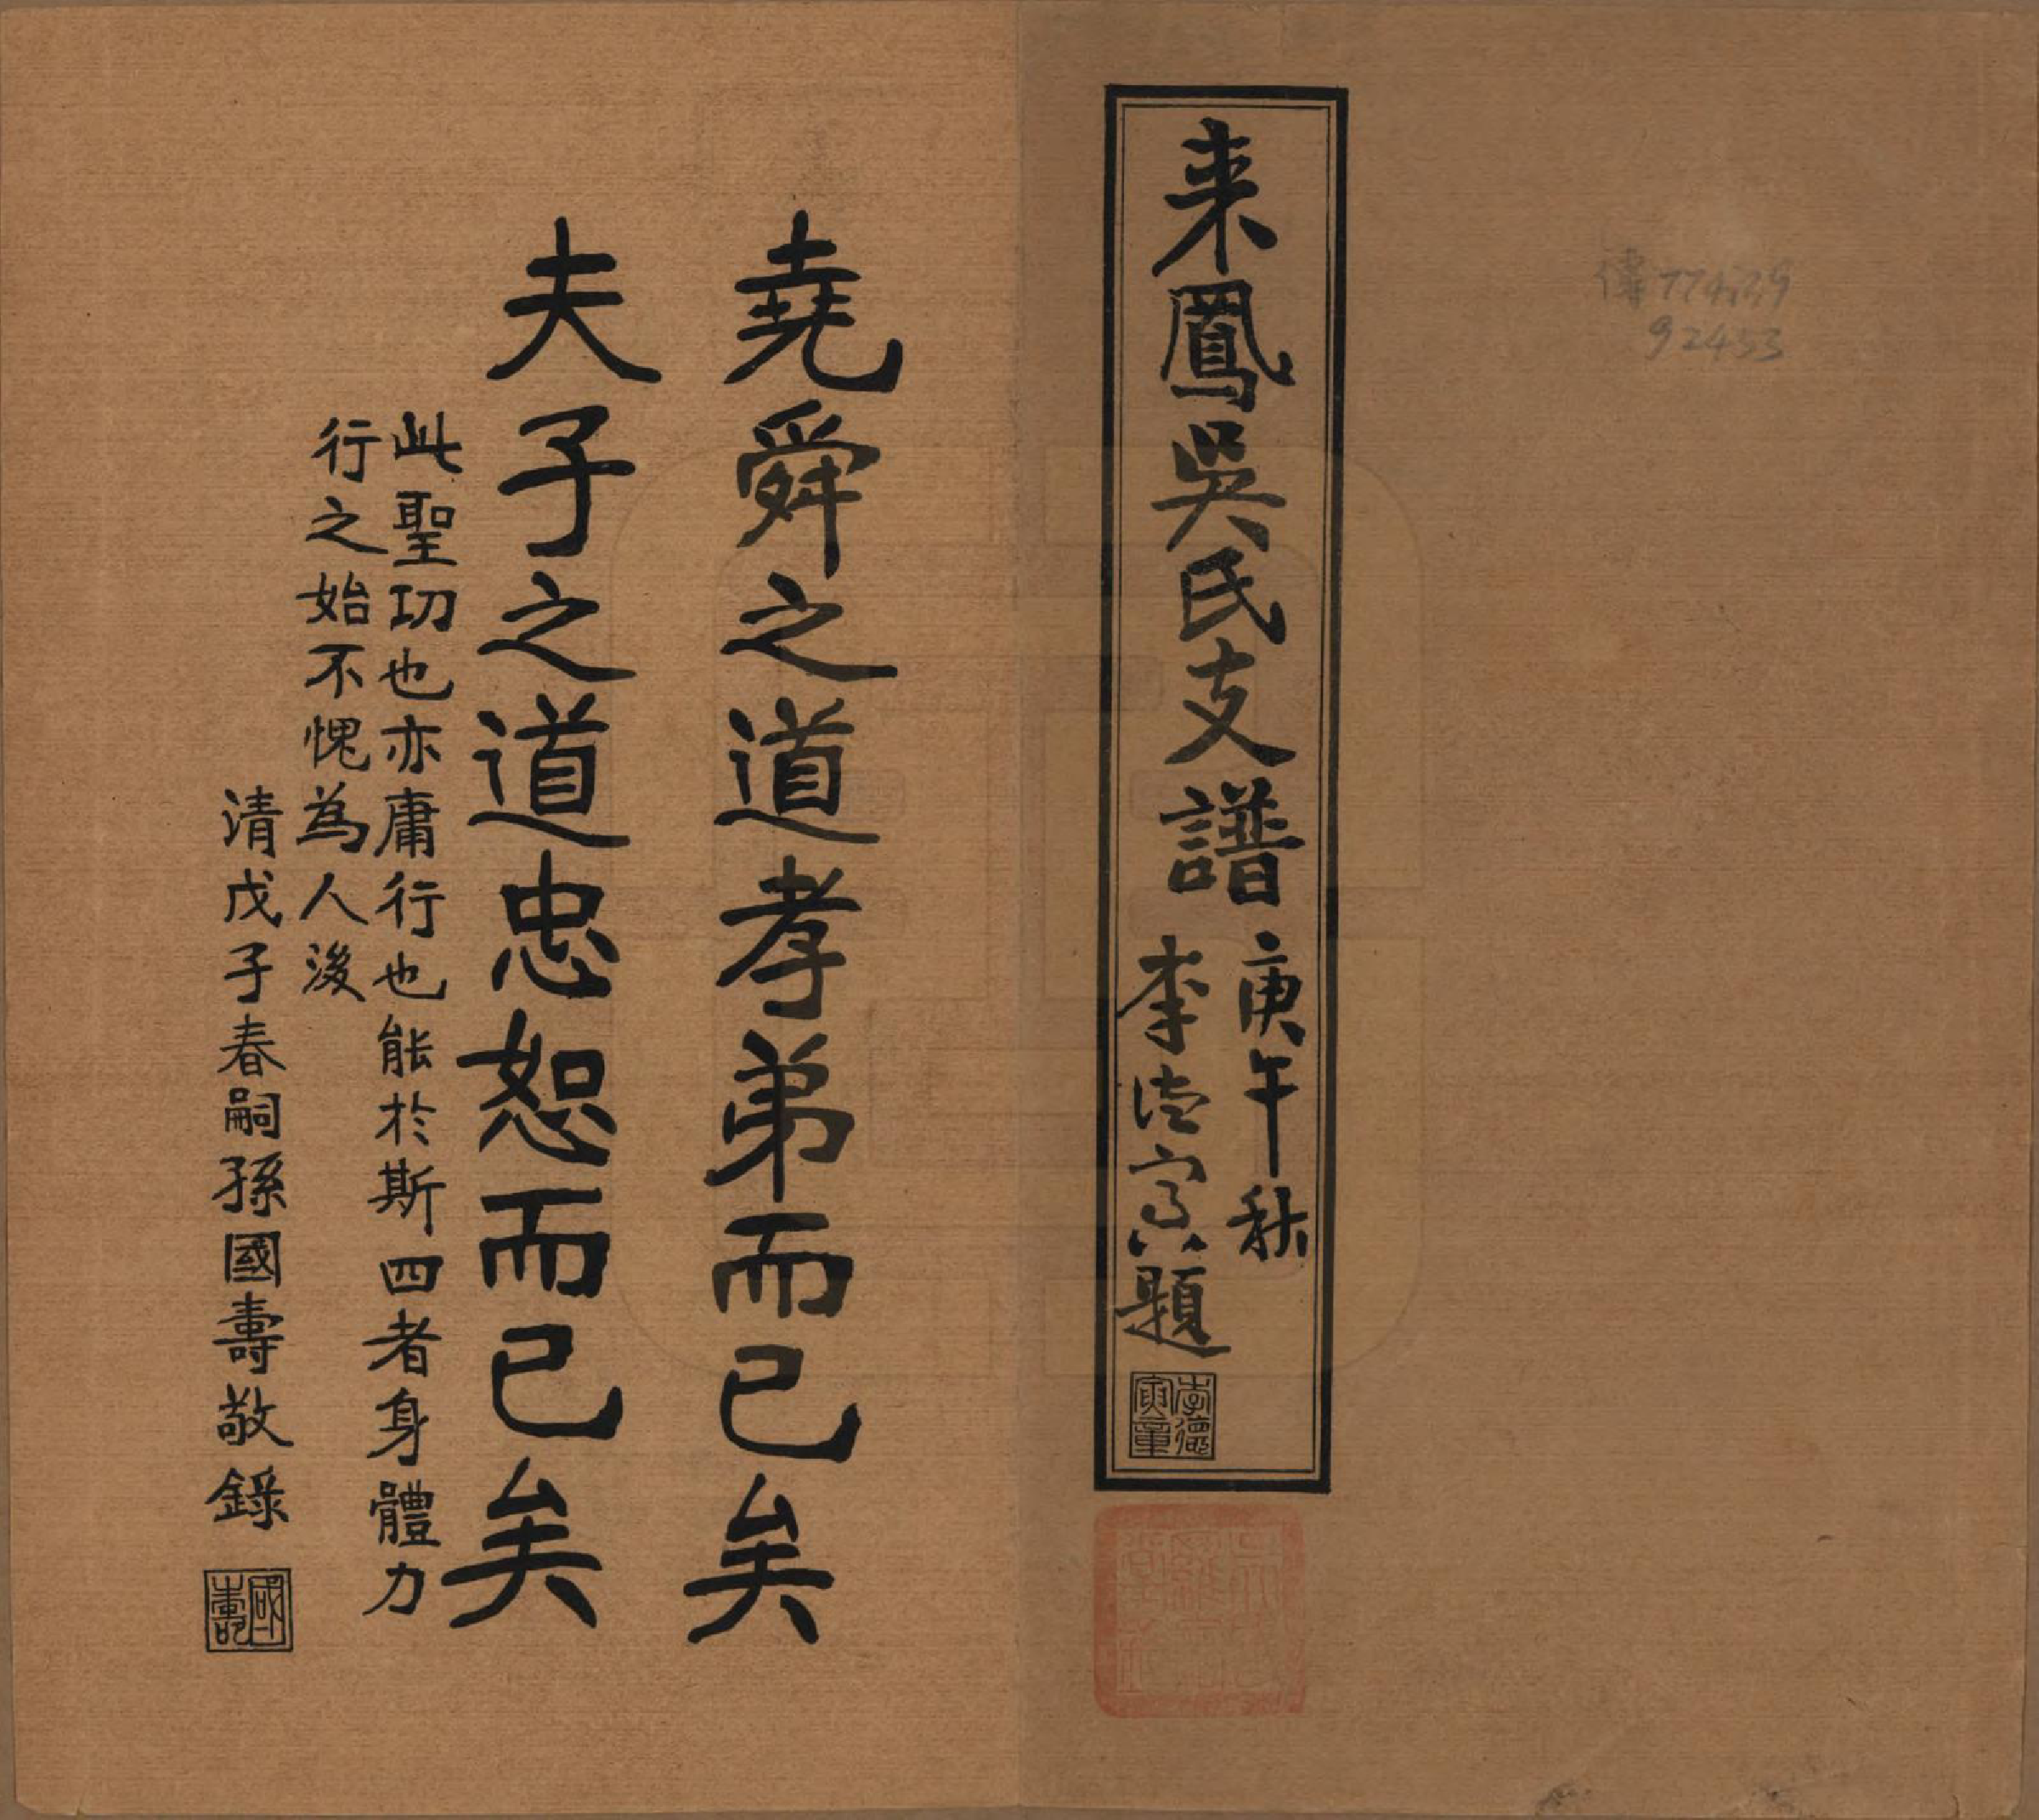 傳 774.39
92433
来鳳吳氏支譜
庚午秋
李德寅題
李德寅章
堯舜之道孝弟而已矣
夫子之道忠恕而已矣
此聖功也亦庸行也能於斯四者身體力
行之始不愧為人後
清戊子春嗣孫國壽敬錄
國壽